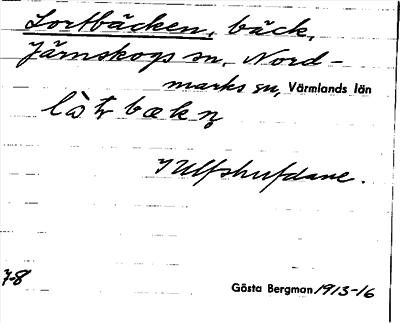 Lortbäcken, bäck,
Järnskogs sn, Nord-
marks sn, Värmlands län
I Ulfshufdane.
7-8
Gösta Bergman 1913-16